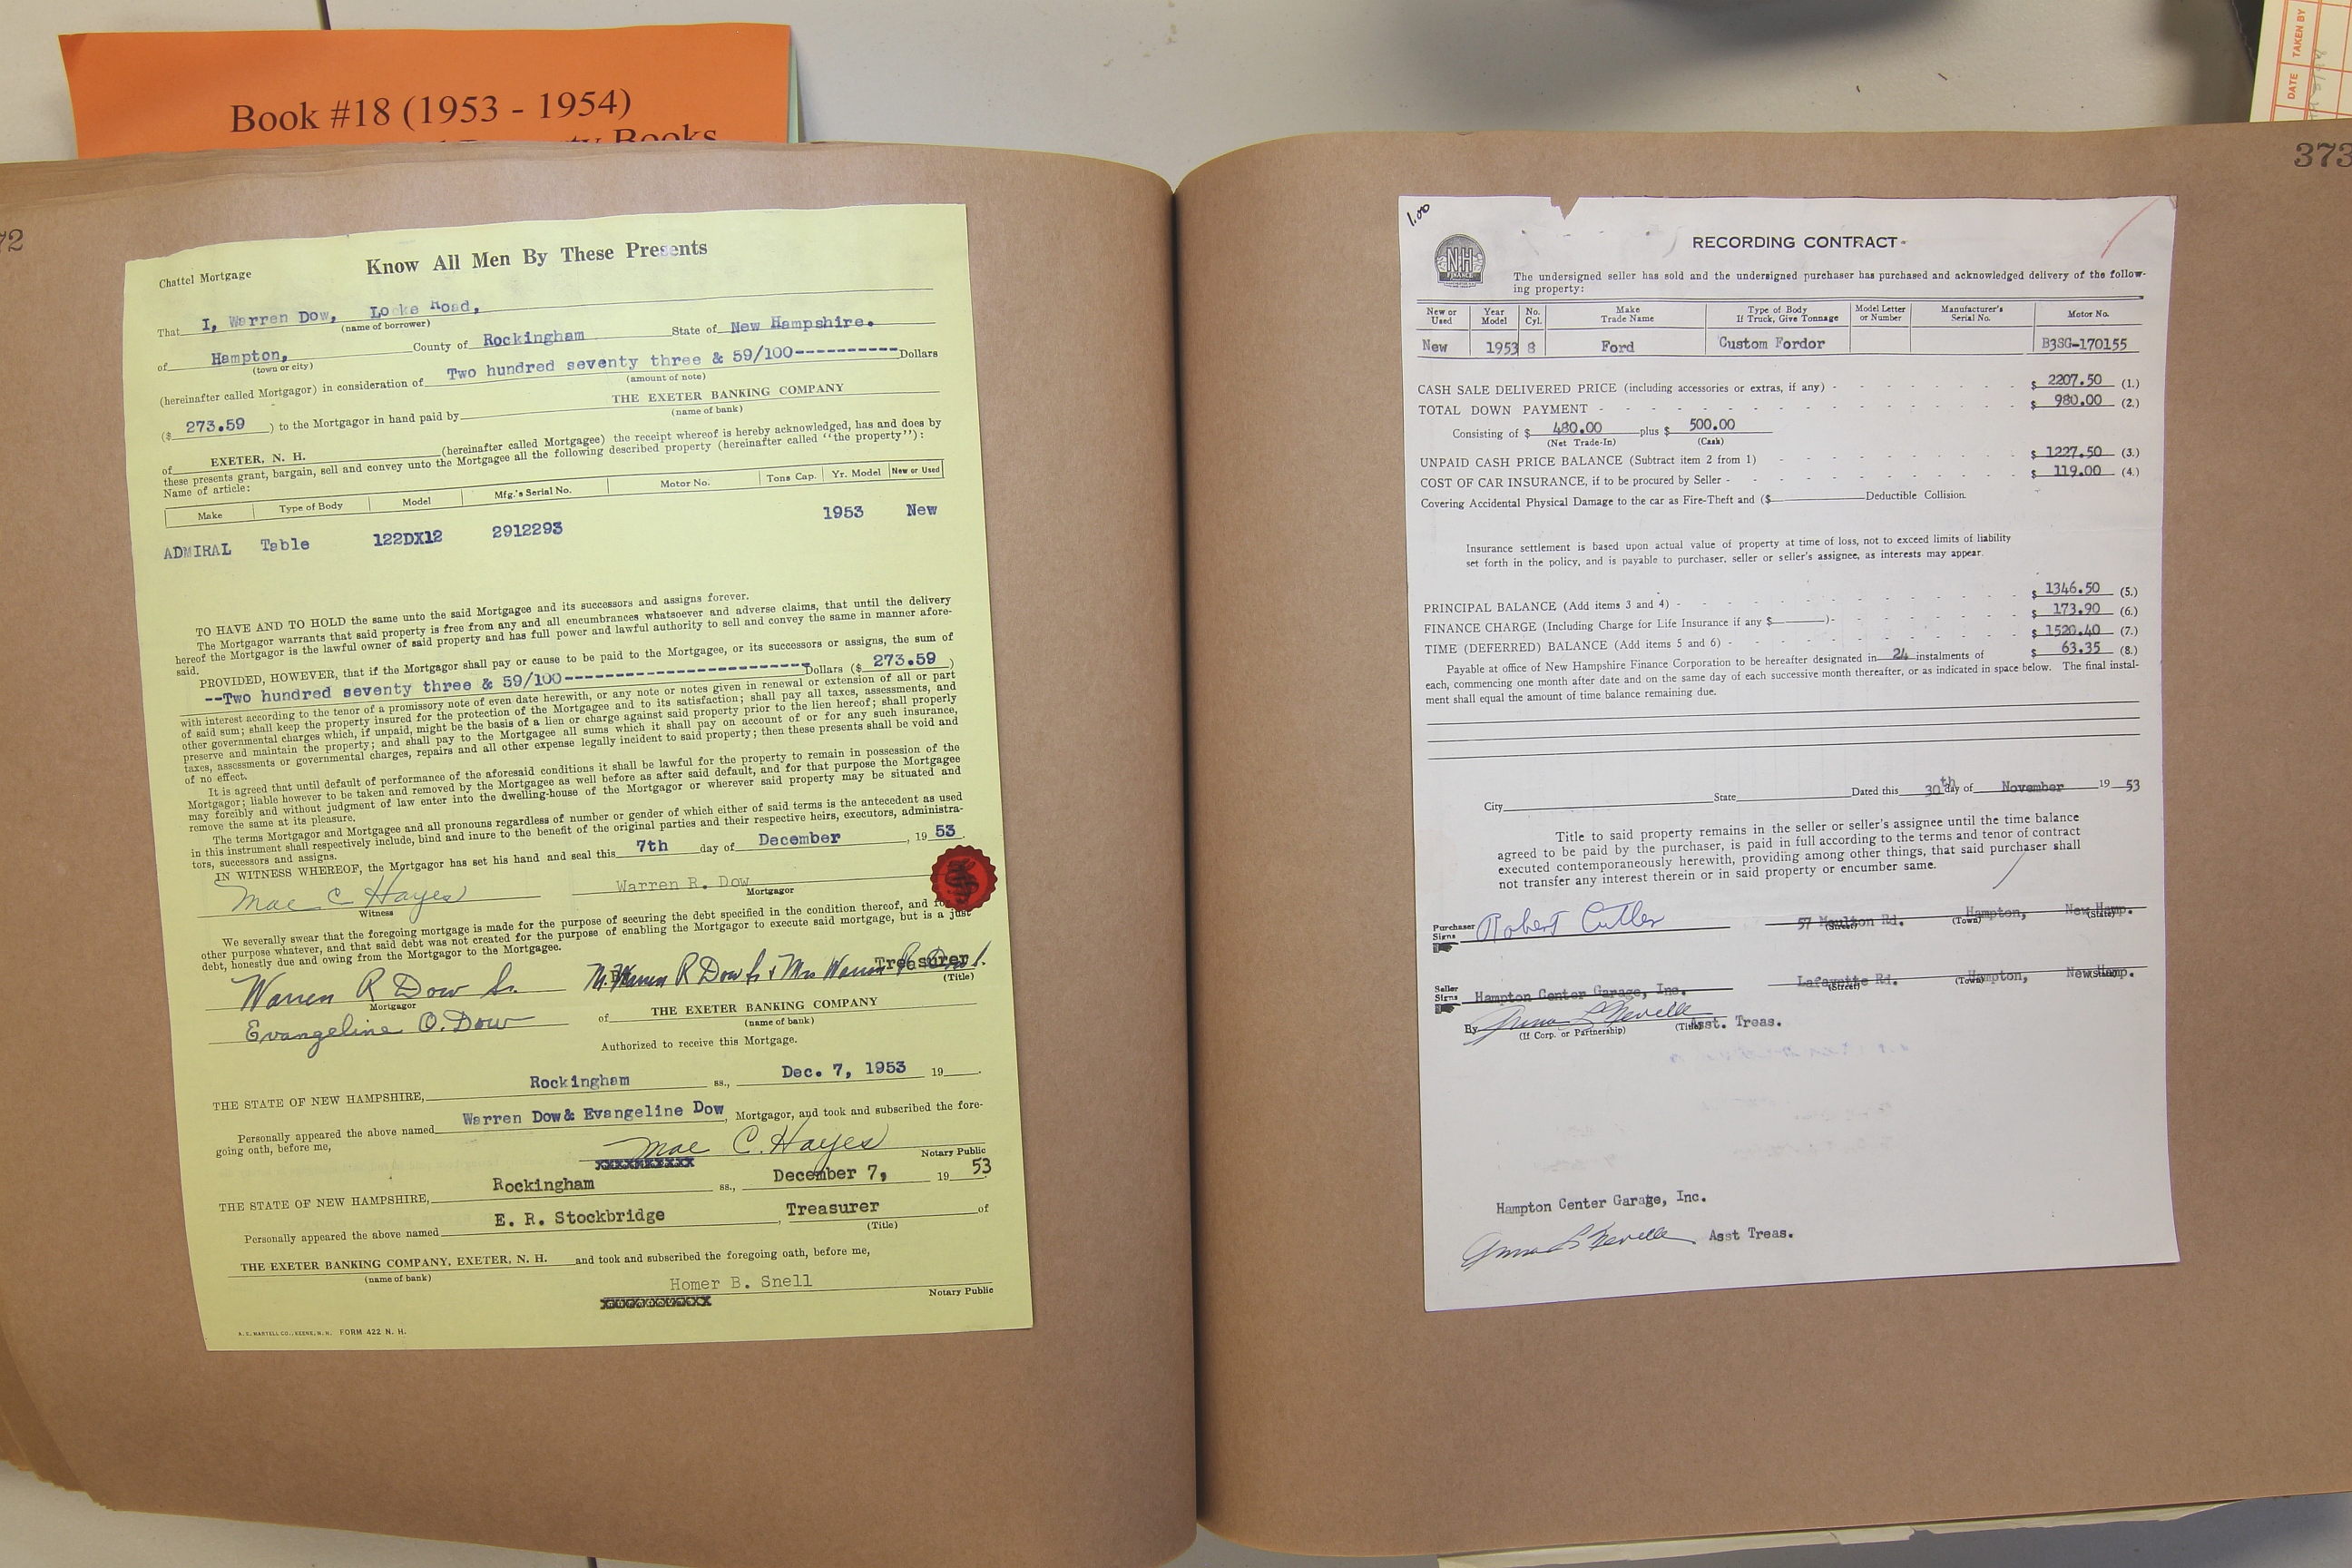 Book #18 (1953 - 1954)
Books
DATE TAKEN BY
72
Know All Men By These Presents
Chattel Mortgage
That I, Warren Dow, Locke Road,
(name of borrower)
of Hampton, County of Rockingham State of New Hampshire.
(town or city)
(hereinafter called Mortgagor) in consideration of Two hundred seventy three & 59/100---------- Dollars
(amount of note)
($ 273.59 ) to the Mortgagor in hand paid by THE EXETER BANKING COMPANY
(name of bank)
of EXETER, N. H. (hereinafter called Mortgagee) the receipt whereof is hereby acknowledged, has and does by
these presents grant, bargain, sell and convey unto the Mortgagee all the following described property (hereinafter called "the property"):
Name of article:
Make Type of Body Model Mfg.'s Serial No. Motor No. Tons Cap. Yr. Model New or Used
ADMIRAL Table 122DX12 2912293 1953 New
TO HAVE AND TO HOLD the same unto the said Mortgagee and its successors and assigns forever.
The Mortgagor warrants that said property is free from any and all encumbrances whatsoever and adverse claims, that until the delivery
hereof the Mortgagor is the lawful owner of said property and has full power and lawful authority to sell and convey the same in manner afore-
said.
PROVIDED, HOWEVER, that if the Mortgagor shall pay or cause to be paid to the Mortgagee, or its successors or assigns, the sum of
--Two hundred seventy three & 59/100---------------------- Dollars ($ 273.59 )
with interest according to the tenor of a promissory note of even date herewith, or any note or notes given in renewal or extension of all or part
of said sum; shall keep the property insured for the protection of the Mortgagee and to its satisfaction; shall pay all taxes, assessments, and
other governmental charges which, if unpaid, might be the basis of a lien or charge against said property prior to the lien hereof; shall properly
preserve and maintain the property; and shall pay to the Mortgagee all sums which it shall pay on account of or for any such insurance,
taxes, assessments or governmental charges, repairs and all other expense legally incident to said property; then these presents shall be void and
of no effect.
It is agreed that until default of performance of the aforesaid conditions it shall be lawful for the property to remain in possession of the
Mortgagor; liable however to be taken and removed by the Mortgagee as well before as after said default, and for that purpose the Mortgagee
may forcibly and without judgment of law enter into the dwelling-house of the Mortgagor or wherever said property may be situated and
remove the same at its pleasure.
The terms Mortgagor and Mortgagee and all pronouns regardless of number or gender of which either of said terms is the antecedent as used
in this instrument shall respectively include, bind and inure to the benefit of the original parties and their respective heirs, executors, administra-
tors, successors and assigns.
IN WITNESS WHEREOF, the Mortgagor has set his hand and seal this 7th day of December , 19 53.
Mae C Hayes Warren R. Dow
Witness Mortgagor
We severally swear that the foregoing mortgage is made for the purpose of securing the debt specified in the condition thereof, and for
other purpose whatever, and that said debt was not created for the purpose of enabling the Mortgagor to execute said mortgage, but is a just
debt, honestly due and owing from the Mortgagor to the Mortgagee.
Warren R Dow Sr. Warren R Dow Sr & Mrs Warren Treasurer
Mortgagor (Title)
Evangeline O. Dow of THE EXETER BANKING COMPANY
(name of bank)
Authorized to receive this Mortgage.
THE STATE OF NEW HAMPSHIRE, Rockingham ss., Dec. 7, 1953 19
Personally appeared the above named Warren Dow& Evangeline Dow, Mortgagor, and took and subscribed the fore-
going oath, before me,
Mae C. Hayes
Notary Public
THE STATE OF NEW HAMPSHIRE, Rockingham ss., December 7, 19 53
Personally appeared the above named E. R. Stockbridge , Treasurer of
(Title)
THE EXETER BANKING COMPANY, EXETER, N. H. and took and subscribed the foregoing oath, before me,
(name of bank)
Homer B. Snell
Notary Public
FORM 422 N. H.
373
1.00
NH
FINANCE
RECORDING CONTRACT
The undersigned seller has sold and the undersigned purchaser has purchased and acknowledged delivery of the follow-
ing property:
New or Used Year Model No. Cyl. Make Trade Name Type of Body If Truck, Give Tonnage Model Letter or Number Manufacturer's Serial No. Motor No.
New 1953 8 Ford Custom Fordor B3SG-170155
CASH SALE DELIVERED PRICE (including accessories or extras, if any) - $ 2207.50 (1.)
TOTAL DOWN PAYMENT - $ 980.00 (2.)
Consisting of $ 480.00 plus $ 500.00
(Net Trade-In) (Cash)
UNPAID CASH PRICE BALANCE (Subtract item 2 from 1) - $ 1227.50 (3.)
COST OF CAR INSURANCE, if to be procured by Seller - $ 119.00 (4.)
Covering Accidental Physical Damage to the car as Fire-Theft and ($ Deductible Collision.
Insurance settlement is based upon actual value of property at time of loss, not to exceed limits of liability
set forth in the policy, and is payable to purchaser, seller or seller's assignee, as interests may appear.
PRINCIPAL BALANCE (Add items 3 and 4) - $ 1346.50 (5.)
FINANCE CHARGE (Including Charge for Life Insurance if any $ ) - $ 173.90 (6.)
TIME (DEFERRED) BALANCE (Add items 5 and 6) - $ 1520.40 (7.)
Payable at office of New Hampshire Finance Corporation to be hereafter designated in 24 instalments of $ 63.35 (8.)
each, commencing one month after date and on the same day of each successive month thereafter, or as indicated in space below. The final instal-
ment shall equal the amount of time balance remaining due.
City State Dated this 30th day of November 19 53
Title to said property remains in the seller or seller's assignee until the time balance
agreed to be paid by the purchaser, is paid in full according to the terms and tenor of contract
executed contemporaneously herewith, providing among other things, that said purchaser shall
not transfer any interest therein or in said property or encumber same.
Purchaser Signs Robert Cutler 57 Moulton Rd. Hampton, New Hamp.
(Street) (Town) (State)
Seller Signs Hampton Center Garage, Inc. Lafayette Rd. Hampton, New Hamp.
(Street) (Town) (State)
By Anna L Neville Asst. Treas.
(If Corp. or Partnership) (Title)
Hampton Center Garage, Inc.
Anna L Neville Asst Treas.